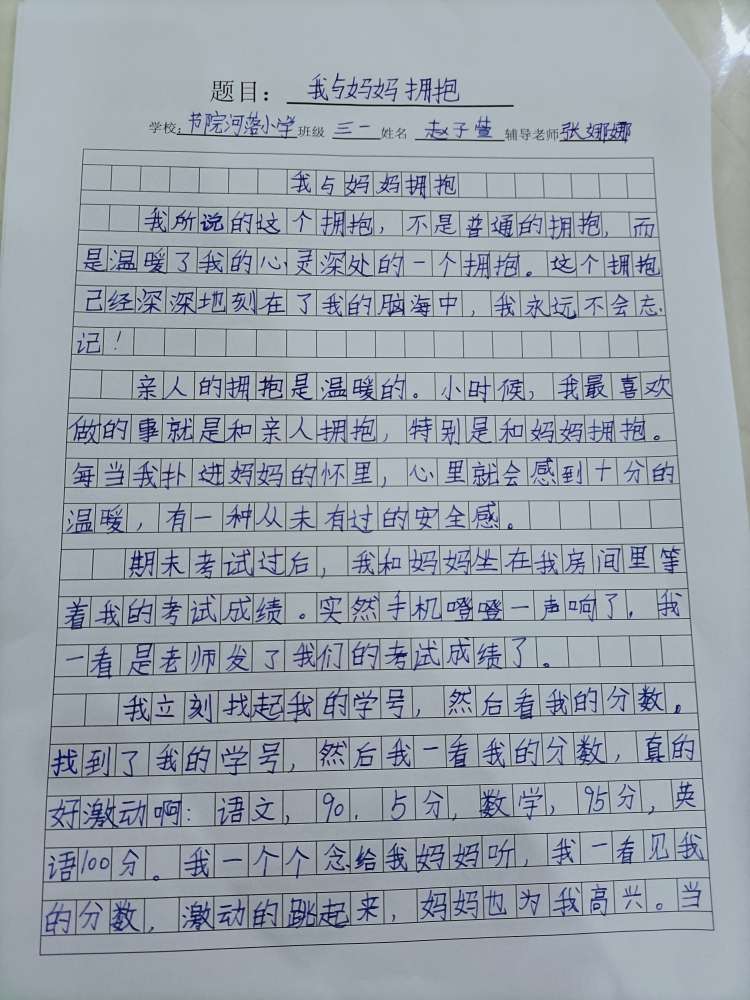 题目：我与妈妈拥抱
学校：书院河落小学班级 三一 姓名 赵子萱 辅导老师 张娜娜
我与妈妈拥抱
我所说的这个拥抱，不是普通的拥抱，而
是温暖了我的心灵深处的一个拥抱。这个拥抱
己经深深地刻在了我的脑海中，我永远不会忘
记！
亲人的拥抱是温暖的。小时候，我最喜欢
做的事就是和亲人拥抱，特别是和妈妈拥抱。
每当我扑进妈妈的怀里，心里就会感到十分的
温暖，有一种从未有过的安全感。
期末考试过后，我和妈妈坐在我房间里等
着我的考试成绩。实然手机噔噔一声响了，我
一看是老师发了我们的考试成绩了。
我立刻找起我的学号，然后看我的分数。
找到了我的学号，然后我一看我的分数，真的
好激动啊：语文，90.5分，数学，95分，英
语100分。我一个个念给我妈妈听，我一看见我
的分数，激动的跳起来，妈妈也为我高兴。当